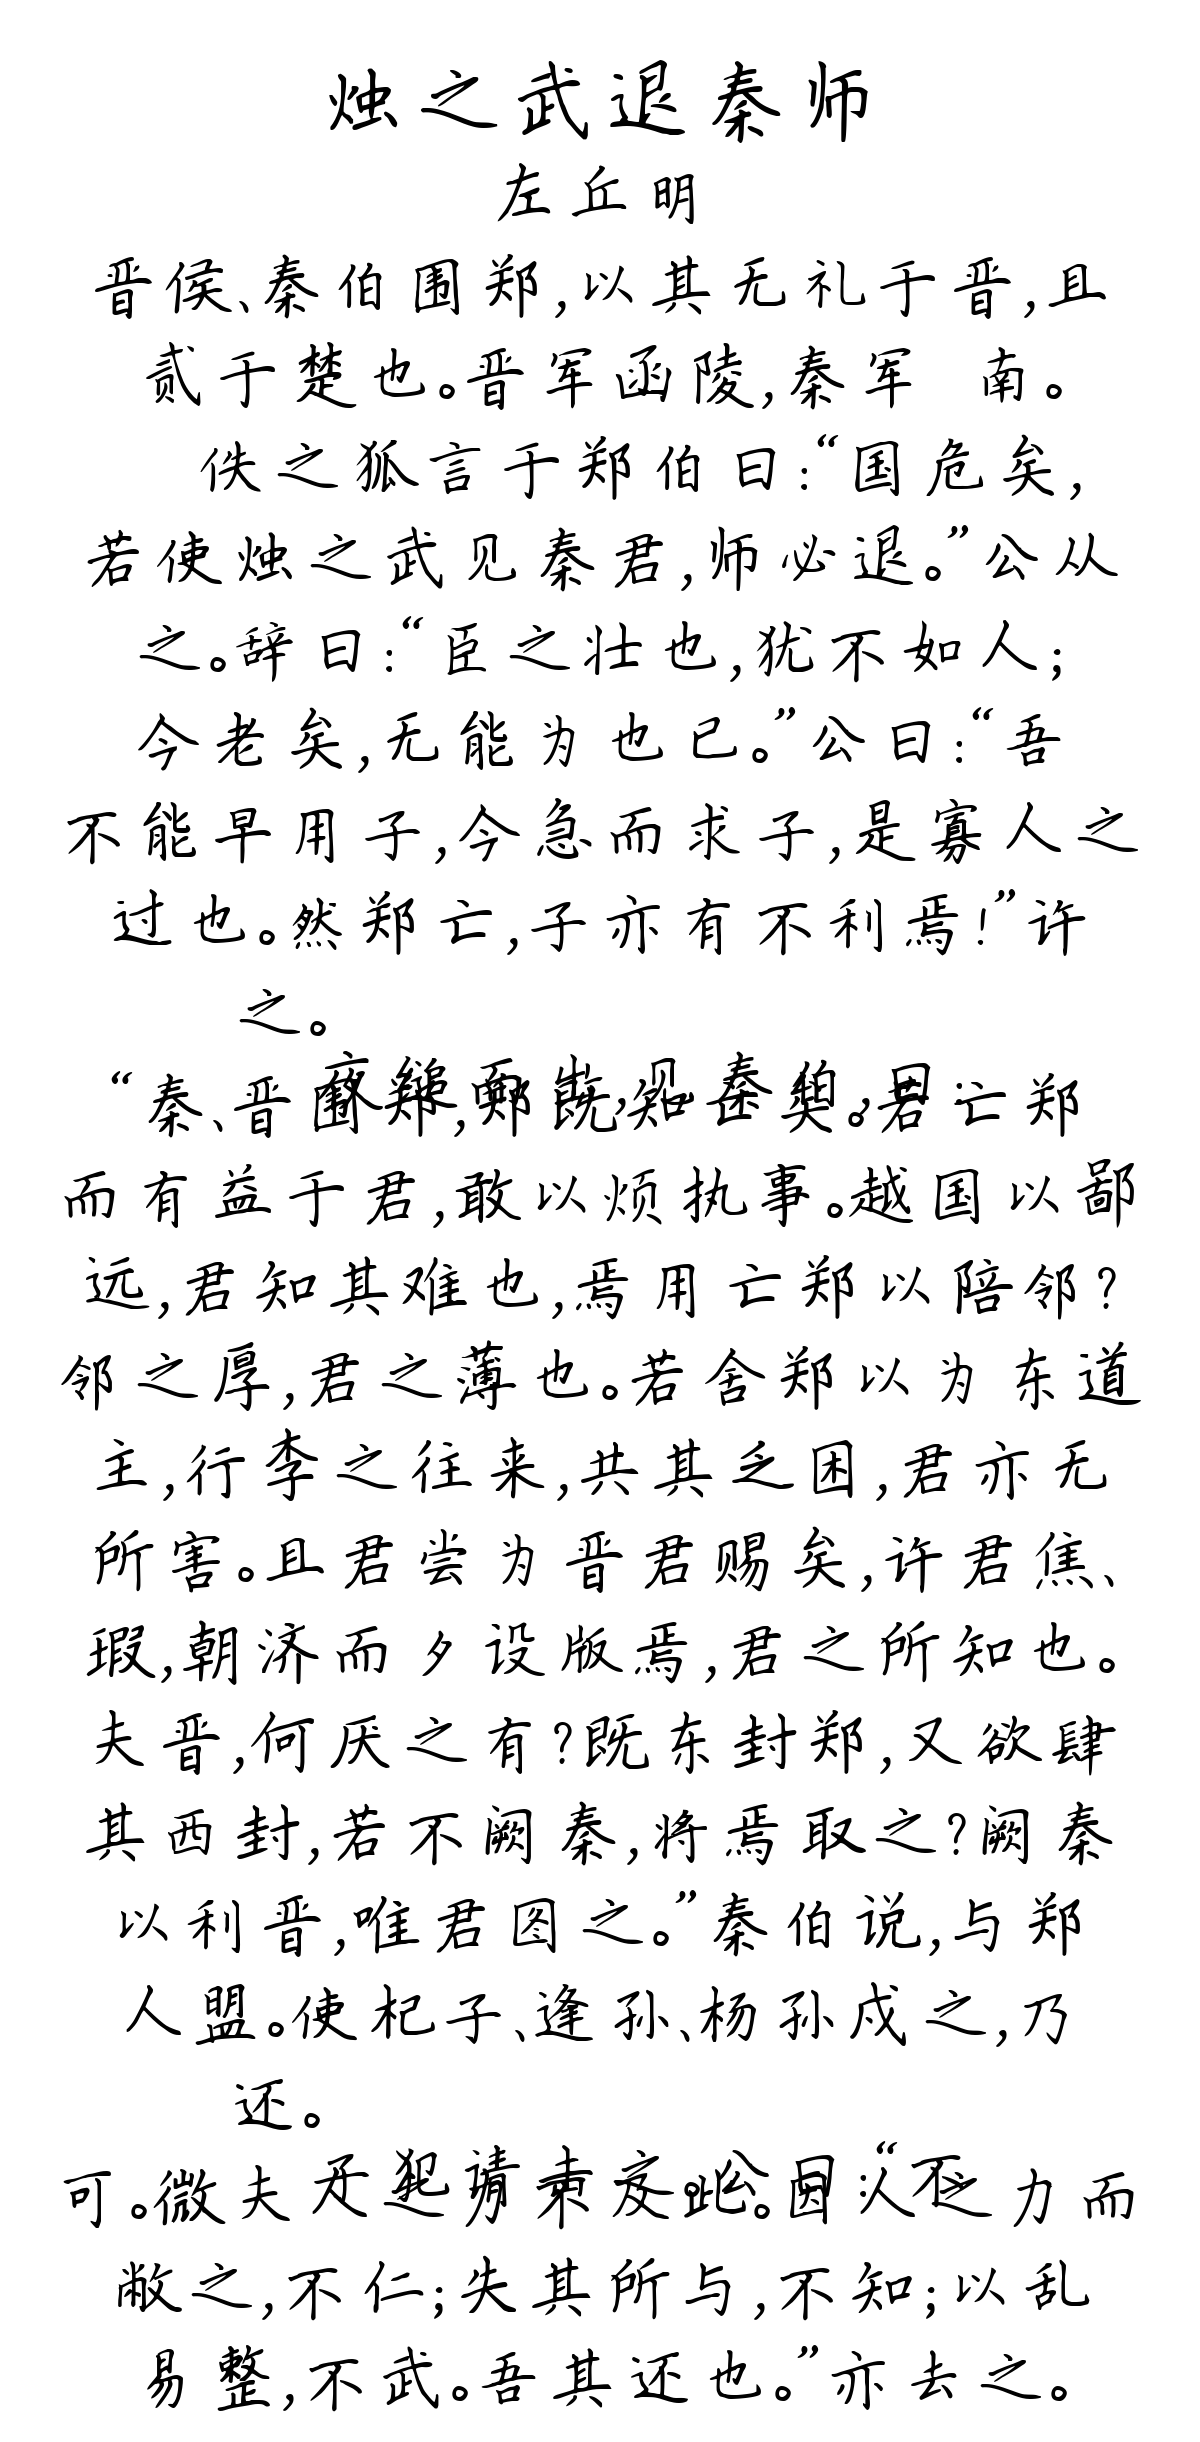 烛之武退秦师
左丘明
晋侯、秦伯围郑,以其无礼于晋,且
贰于楚也。晋军函陵,秦军 南。
佚之狐言于郑伯曰:“国危矣,
若使烛之武见秦君,师必退。”公从
之。辞曰:“臣之壮也,犹不如人;
今老矣,无能为也已。”公曰:“吾
不能早用子,今急而求子,是寡人之
过也。然郑亡,子亦有不利焉!”许
之。
夜缒而出,见秦伯,曰:
“秦、晋围郑,郑既知亡矣。若亡郑
而有益于君,敢以烦执事。越国以鄙
远,君知其难也,焉用亡郑以陪邻?
邻之厚,君之薄也。若舍郑以为东道
主,行李之往来,共其乏困,君亦无
所害。且君尝为晋君赐矣,许君焦、
瑕,朝济而夕设版焉,君之所知也。
夫晋,何厌之有?既东封郑,又欲肆
其西封,若不阙秦,将焉取之?阙秦
以利晋,唯君图之。”秦伯说,与郑
人盟。使杞子、逢孙、杨孙戍之,乃
还。
子犯请击之。公曰:“不
可。微夫人之力不及此。因人之力而
敝之,不仁;失其所与,不知;以乱
易整,不武。吾其还也。”亦去之。